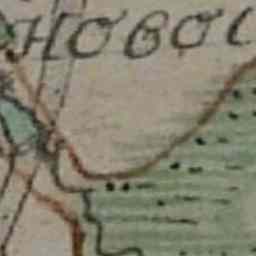 НОВОС